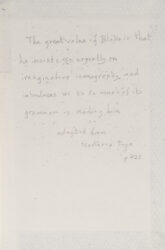 The great value of Blake is that
he insists so urgently on
imaginative iconography, and
introduces us to so much of its
grammar in reading him
adapted from
Northrop Frye
p 421